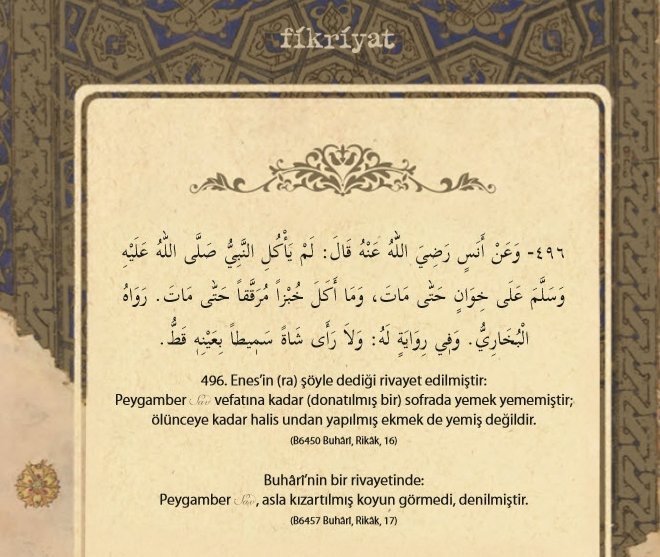 fikriyat
٤٩٦- وَعَنْ أَنَسٍ رَضِيَ اللهُ عَنْهُ قَالَ: لَمْ يَأْكُلِ النَّبِيُّ صَلَّى اللهُ عَلَيْهِ
وَسَلَّمَ عَلَى خِوَانٍ حَتَّى مَاتَ، وَمَا أَكَلَ خُبْزاً مُرَقَّقاً حَتَّى مَاتَ. رَوَاهُ
الْبُخَارِيُّ. وَفِي رِوَايَةٍ لَهُ: وَلاَ رَأَى شَاةً سَمِيطاً بِعَيْنِهِ قَطُّ.
496. Enes’in (ra) şöyle dediği rivayet edilmiştir:
Peygamber Sav vefatına kadar (donatılmış bir) sofrada yemek yememiştir;
ölünceye kadar halis undan yapılmış ekmek de yemiş değildir.
(B6450 Buhârî, Rikâk, 16)
Buhârî’nin bir rivayetinde:
Peygamber Sav, asla kızartılmış koyun görmedi, denilmiştir.
(B6457 Buhârî, Rikâk, 17)